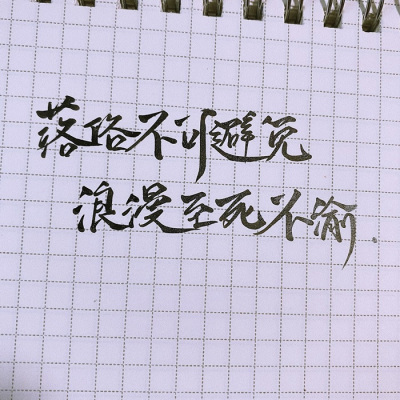 落俗不可避免
浪漫至死不渝.